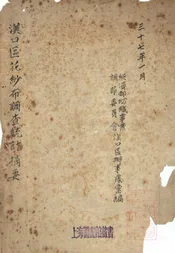 三十七年一月
經濟部紡織事業
調節委員會漢口區辦事處彙編
漢口區花紗布調查統計摘要
上海圖書館藏書